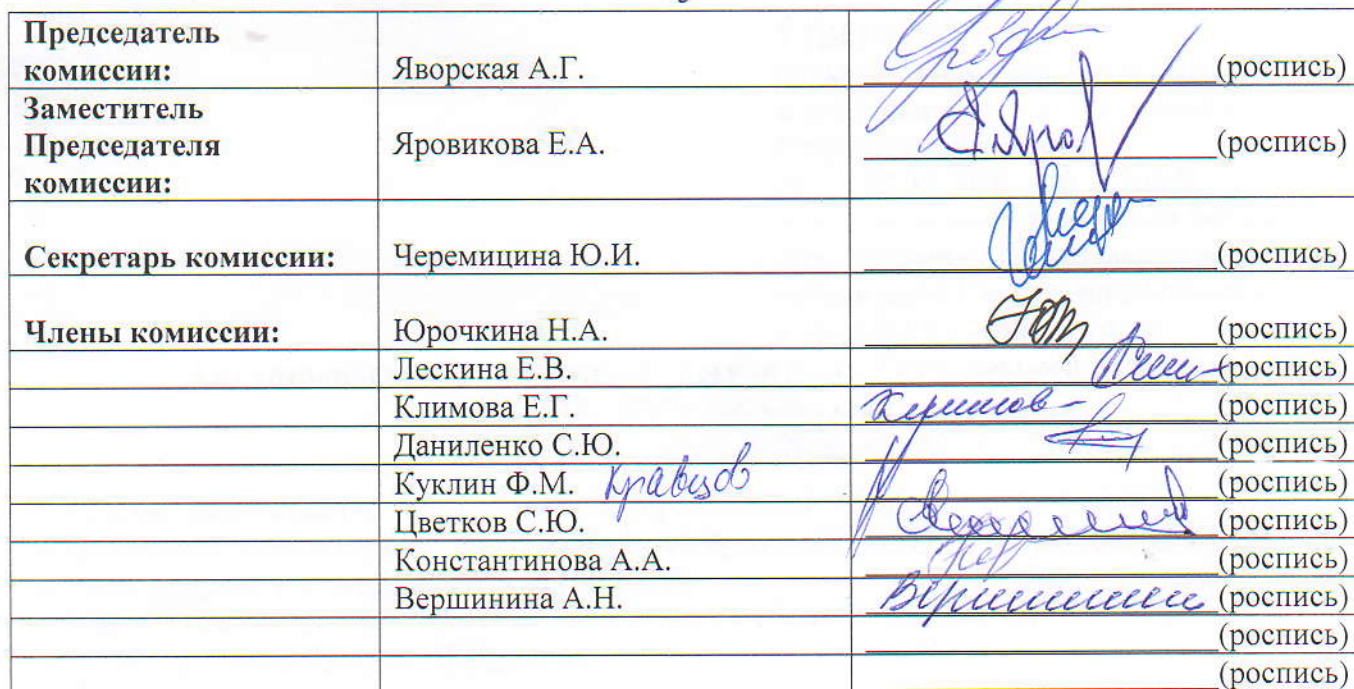 Председатель
комиссии: Яворская А.Г. (роспись)
Заместитель
Председателя Яровикова Е.А. (роспись)
комиссии:
Секретарь комиссии: Черемицина Ю.И. (роспись)
Члены комиссии: Юрочкина Н.А. (роспись)
Лескина Е.В. (роспись)
Климова Е.Г. (роспись)
Даниленко С.Ю. (роспись)
Куклин Ф.М. Кравцов (роспись)
Цветков С.Ю. (роспись)
Константинова А.А. (роспись)
Вершинина А.Н. (роспись)
(роспись)
(роспись)